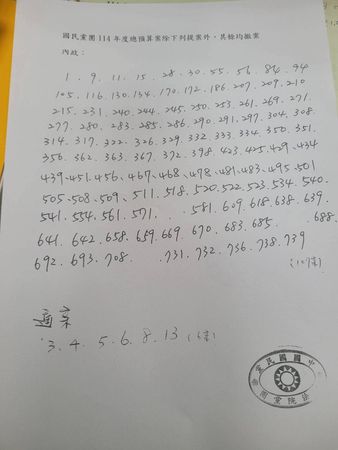 國民黨團114年度總預算案除下列提案外，其餘均撤案
內政：
1．9．11．15．28．30．55．56．84．94
105．116．130．134．170．172．186．207．209．210
215．231．240．244．245．250．253．261．269．271．
277．280．283．285．286．290．291．297．304．308．
314．317．322．326．329．332．333．334．350．351．
356．362．363．367．372．398．423．425．429．434
439、451、456、467、468、478、481、483、495、501
505、508、509、511．518．520．522．523．534．540．
541．554．561．571．581．609．618．638．639．
641．642．658．659．669．670．683．685．688．
692．693．708．731．732．736．738．739
通案
3．4．5．6．8．13（6案）
中國國民黨
立法院黨團